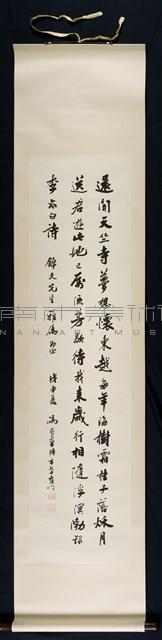 還聞天竺寺夢想懷東越每年海樹霜桂子落秋月
送君遊此地已屬流芳歇待我來歲行相隨浮溟渤
李太白詩 錦文先生雅屬即正 戊申夏
NAN ART MUSEUM